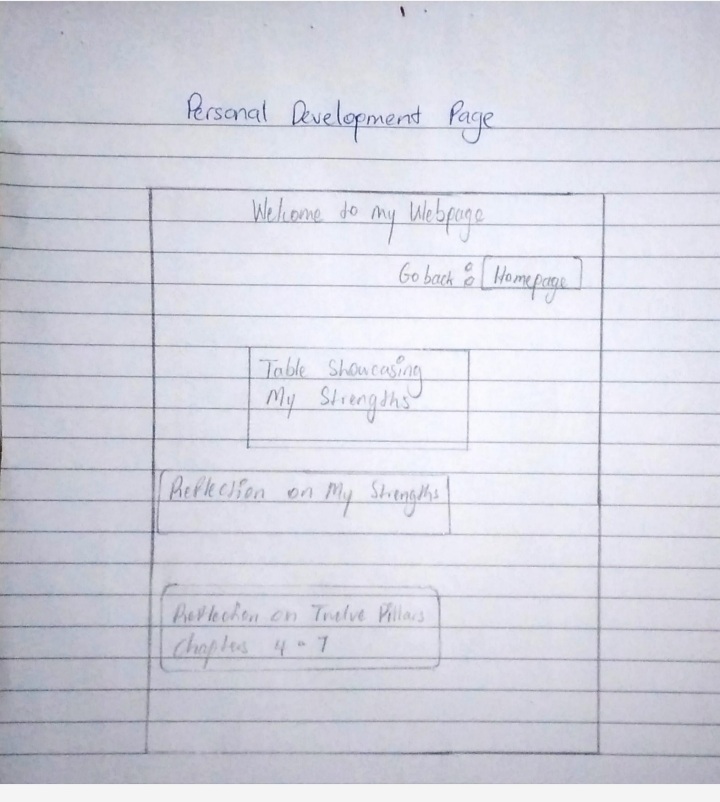 Personal Development Page
Welcome to my Webpage
Go back : Homepage
Table Showcasing
My Strengths
Reflection on My Strengths
Reflection on Twelve Pillars
Chapters 4 - 7